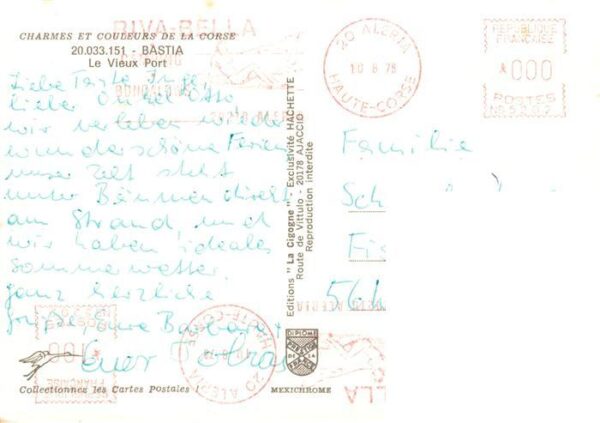 RIVA-BELLA
CHARMES ET COULEURS DE LA CORSE
20.033.151 - BASTIA
Le Vieux Port
Liebe Tante Inge,
lieber Onkel Otto
wir verleben wieder
wunderschöne Ferien
unser Zelt steht
unter Bäumen direkt
am Strand, und
wir haben ideales
Sommerwetter.
Ganz herzliche
Grüße, Eure Barbara
Euer Tobias
Collectionnez les Cartes Postales !
Editions "La Cigogne" - Exclusivité HACHETTE
Route de Vittulo - 20178 AJACCIO
Reproduction interdite
MEXICHROME
20 ALERIA
10 8 78
HAUTE-CORSE
REPUBLIQUE
FRANCAISE
A 000
POSTES
Familie
Sch
20 ALERIA
HAUTE-CORSE